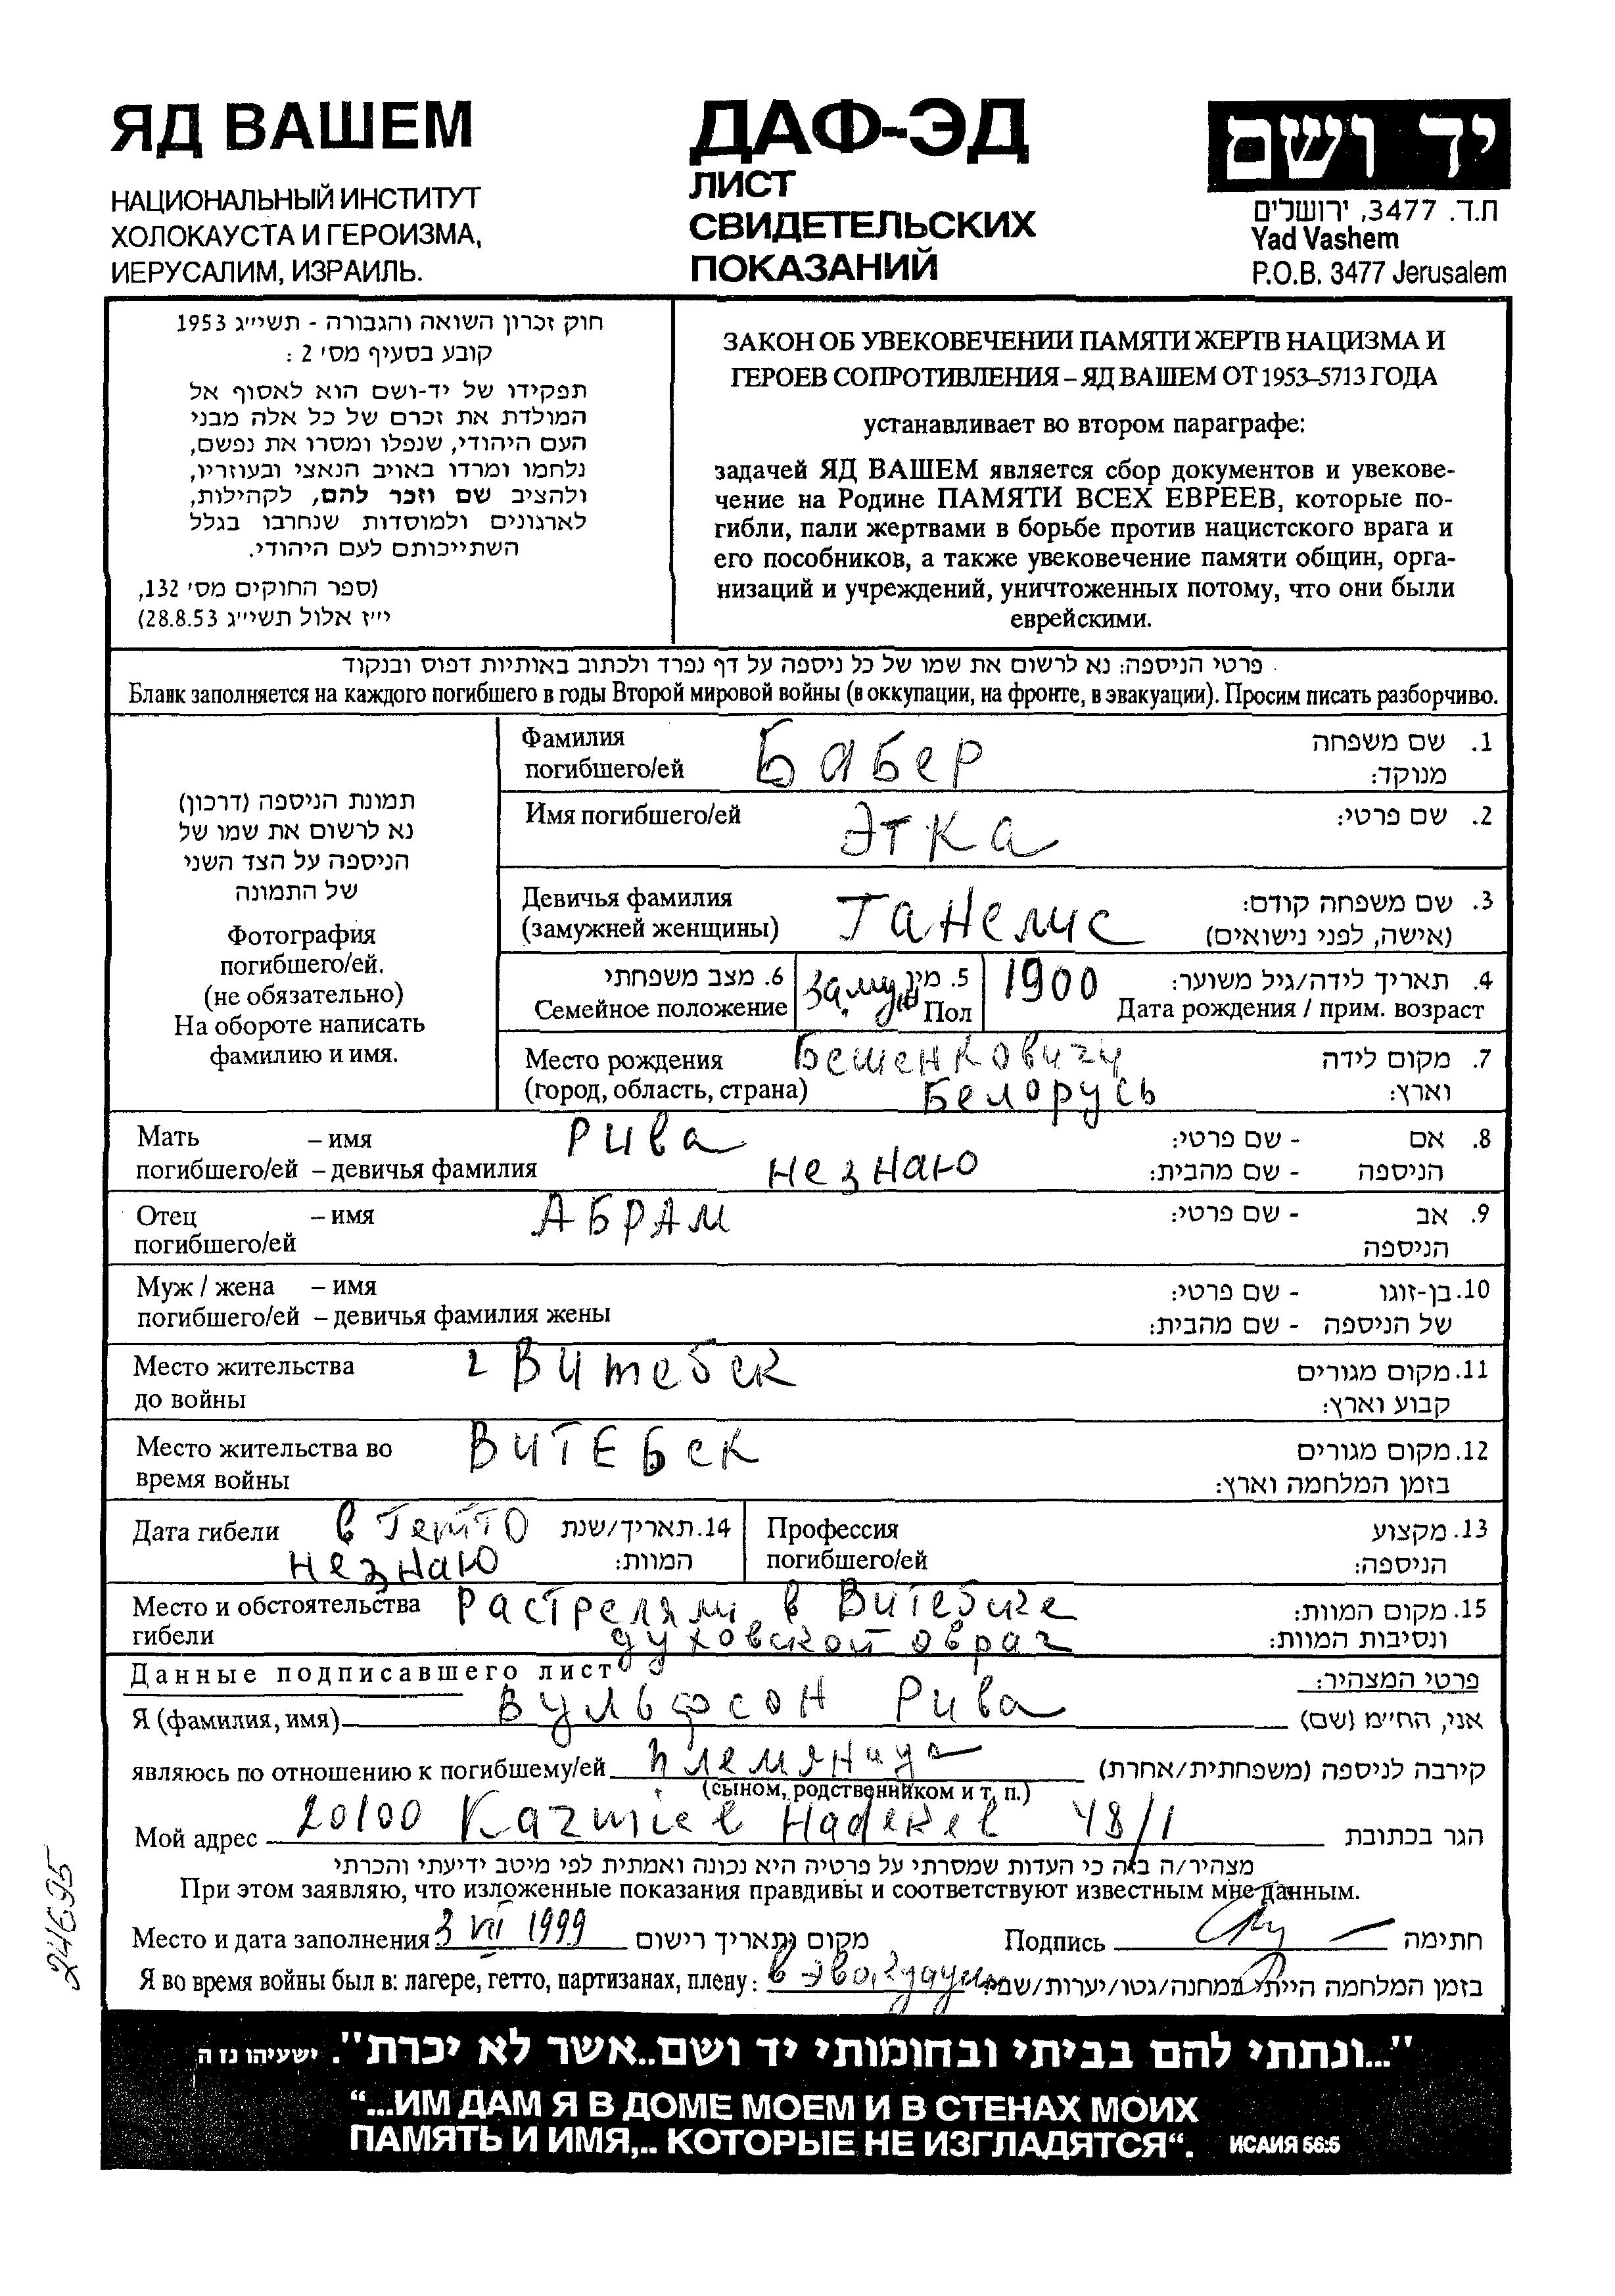 ЯД ВАШЕМ
НАЦИОНАЛЬНЫЙ ИНСТИТУТ
ХОЛОКАУСТА И ГЕРОИЗМА,
ИЕРУСАЛИМ, ИЗРАИЛЬ.
ДАФ-ЭД
ЛИСТ
СВИДЕТЕЛЬСКИХ
ПОКАЗАНИЙ
יד ושם
ת.ד. 3477, ירושלים
Yad Vashem
P.O.B. 3477 Jerusalem
חוק זכרון השואה והגבורה - תשי״ג 1953
קובע בסעיף מס' 2 :
תפקידו של יד-ושם הוא לאסוף אל
המולדת את זכרם של כל אלה מבני
העם היהודי, שנפלו ומסרו את נפשם,
נלחמו ומרדו באויב הנאצי ובעוזריו,
ולהציב שם וזכר להם, לקהילות,
לארגונים ולמוסדות שנחרבו בגלל
השתייכותם לעם היהודי.
(ספר החוקים מס' 132,
י״ז אלול תשי״ג 28.8.53)
ЗАКОН ОБ УВЕКОВЕЧЕНИИ ПАМЯТИ ЖЕРТВ НАЦИЗМА И
ГЕРОЕВ СОПРОТИВЛЕНИЯ – ЯД ВАШЕМ ОТ 1953–5713 ГОДА
устанавливает во втором параграфе:
задачей ЯД ВАШЕМ является сбор документов и увекове-
чение на Родине ПАМЯТИ ВСЕХ ЕВРЕЕВ, которые по-
гибли, пали жертвами в борьбе против нацистского врага и
его пособников, а также увековечение памяти общин, орга-
низаций и учреждений, уничтоженных потому, что они были
еврейскими.
פרטי הניספה: נא לרשום את שמו של כל ניספה על דף נפרד ולכתוב באותיות דפוס ובנקוד
Бланк заполняется на каждого погибшего в годы Второй мировой войны (в оккупации, на фронте, в эвакуации). Просим писать разборчиво.
תמונת הניספה (דרכון)
נא לרשום את שמו של
הניספה על הצד השני
של התמונה
Фотография
погибшего/ей.
(не обязательно)
На обороте написать
фамилию и имя.
Фамилия Бабер 1. שם משפחה
погибшего/ей מנוקד:
Имя погибшего/ей Этка 2. שם פרטי:
Девичья фамилия Ганелис 3. שם משפחה קודם:
(замужней женщины) (אישה, לפני נישואים)
6. מצב משפחתי замуж 5. מין 1900 4. תאריך לידה/גיל משוער:
Семейное положение Пол Дата рождения / прим. возраст
Место рождения Бешенковичи 7. מקום לידה
(город, область, страна) Белорусь וארץ:
Мать – имя Рива 8. אם - שם פרטי:
погибшего/ей – девичья фамилия незнаю הניספה - שם מהבית:
Отец – имя АБРАМ 9. אב - שם פרטי:
погибшего/ей הניספה
Муж / жена – имя 10. בן-זוגו - שם פרטי:
погибшего/ей – девичья фамилия жены של הניספה - שם מהבית:
Место жительства г Витебск 11. מקום מגורים
до войны קבוע וארץ:
Место жительства во ВИТЕБск 12. מקום מגורים
время войны בזמן המלחמה וארץ:
Дата гибели в Гетто 14. תאריך/שנת Профессия 13. מקצוע
незнаю המוות: погибшего/ей הניספה:
Место и обстоятельства Растреляли в Витебске 15. מקום המוות:
гибели духовской овраг ונסיבות המוות:
Данные подписавшего лист פרטי המצהיר:
Я (фамилия, имя) Вульфсон Рива אני, הח״מ (שם)
являюсь по отношению к погибшему/ей племяница קירבה לניספה (משפחתית/אחרת)
(сыном, родственником и т. п.)
Мой адрес 20100 Kazmiel Hadekel 48/1 הגר בכתובת
מצהיר/ה בזה כי העדות שמסרתי על פרטיה היא נכונה ואמתית לפי מיטב ידיעתי והכרתי
При этом заявляю, что изложенные показания правдивы и соответствуют известным мне данным.
Место и дата заполнения 3 VII 1999 מקום ותאריך רישום Подпись חתימה
Я во время войны был в: лагере, гетто, партизанах, плену: в эвакуации בזמן המלחמה הייתי במחנה/גטו/יערות/שבי:
244695
"...ונתתי להם בביתי ובחומותי יד ושם..אשר לא יכרת". ישעיהו נז ה
“...ИМ ДАМ Я В ДОМЕ МОЕМ И В СТЕНАХ МОИХ
ПАМЯТЬ И ИМЯ,.. КОТОРЫЕ НЕ ИЗГЛАДЯТСЯ“. ИСАИЯ 56:5